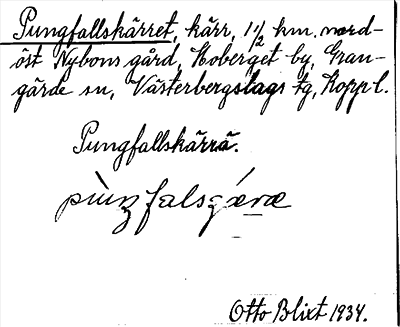 Pungfallskärret, kärr, 1 1/2 km. nord-
öst Nybons gård, Hoberget by, Gran-
gärde sn, Västerbergslags tg, Kopp l.
Pungfallskärrä.
Otto Blixt 1934.